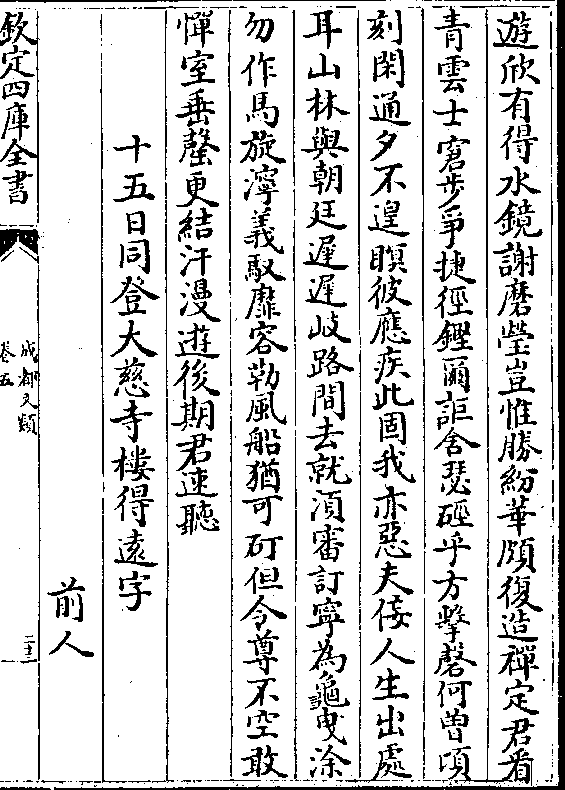 遊欣有得水鏡謝磨瑩豈惟勝紛華頗復造禪定君看
青雲士窘步爭捷徑鏗爾詎舍瑟硜乎方擊磬何曽頃
刻閑通夕不遑瞑彼應疾此固我亦惡夫佞人生出處
耳山林與朝廷遲遲岐路間去就湏審訂寧為龜曳涂
勿作馬旋濘義馭靡容勒風船猶可矴但令尊不空敢
憚室垂罄更結汗漫遊後期君速聽
十五日同登大慈寺樓得遠字
前人
欽定四庫全書
成都文類
卷五
二十三